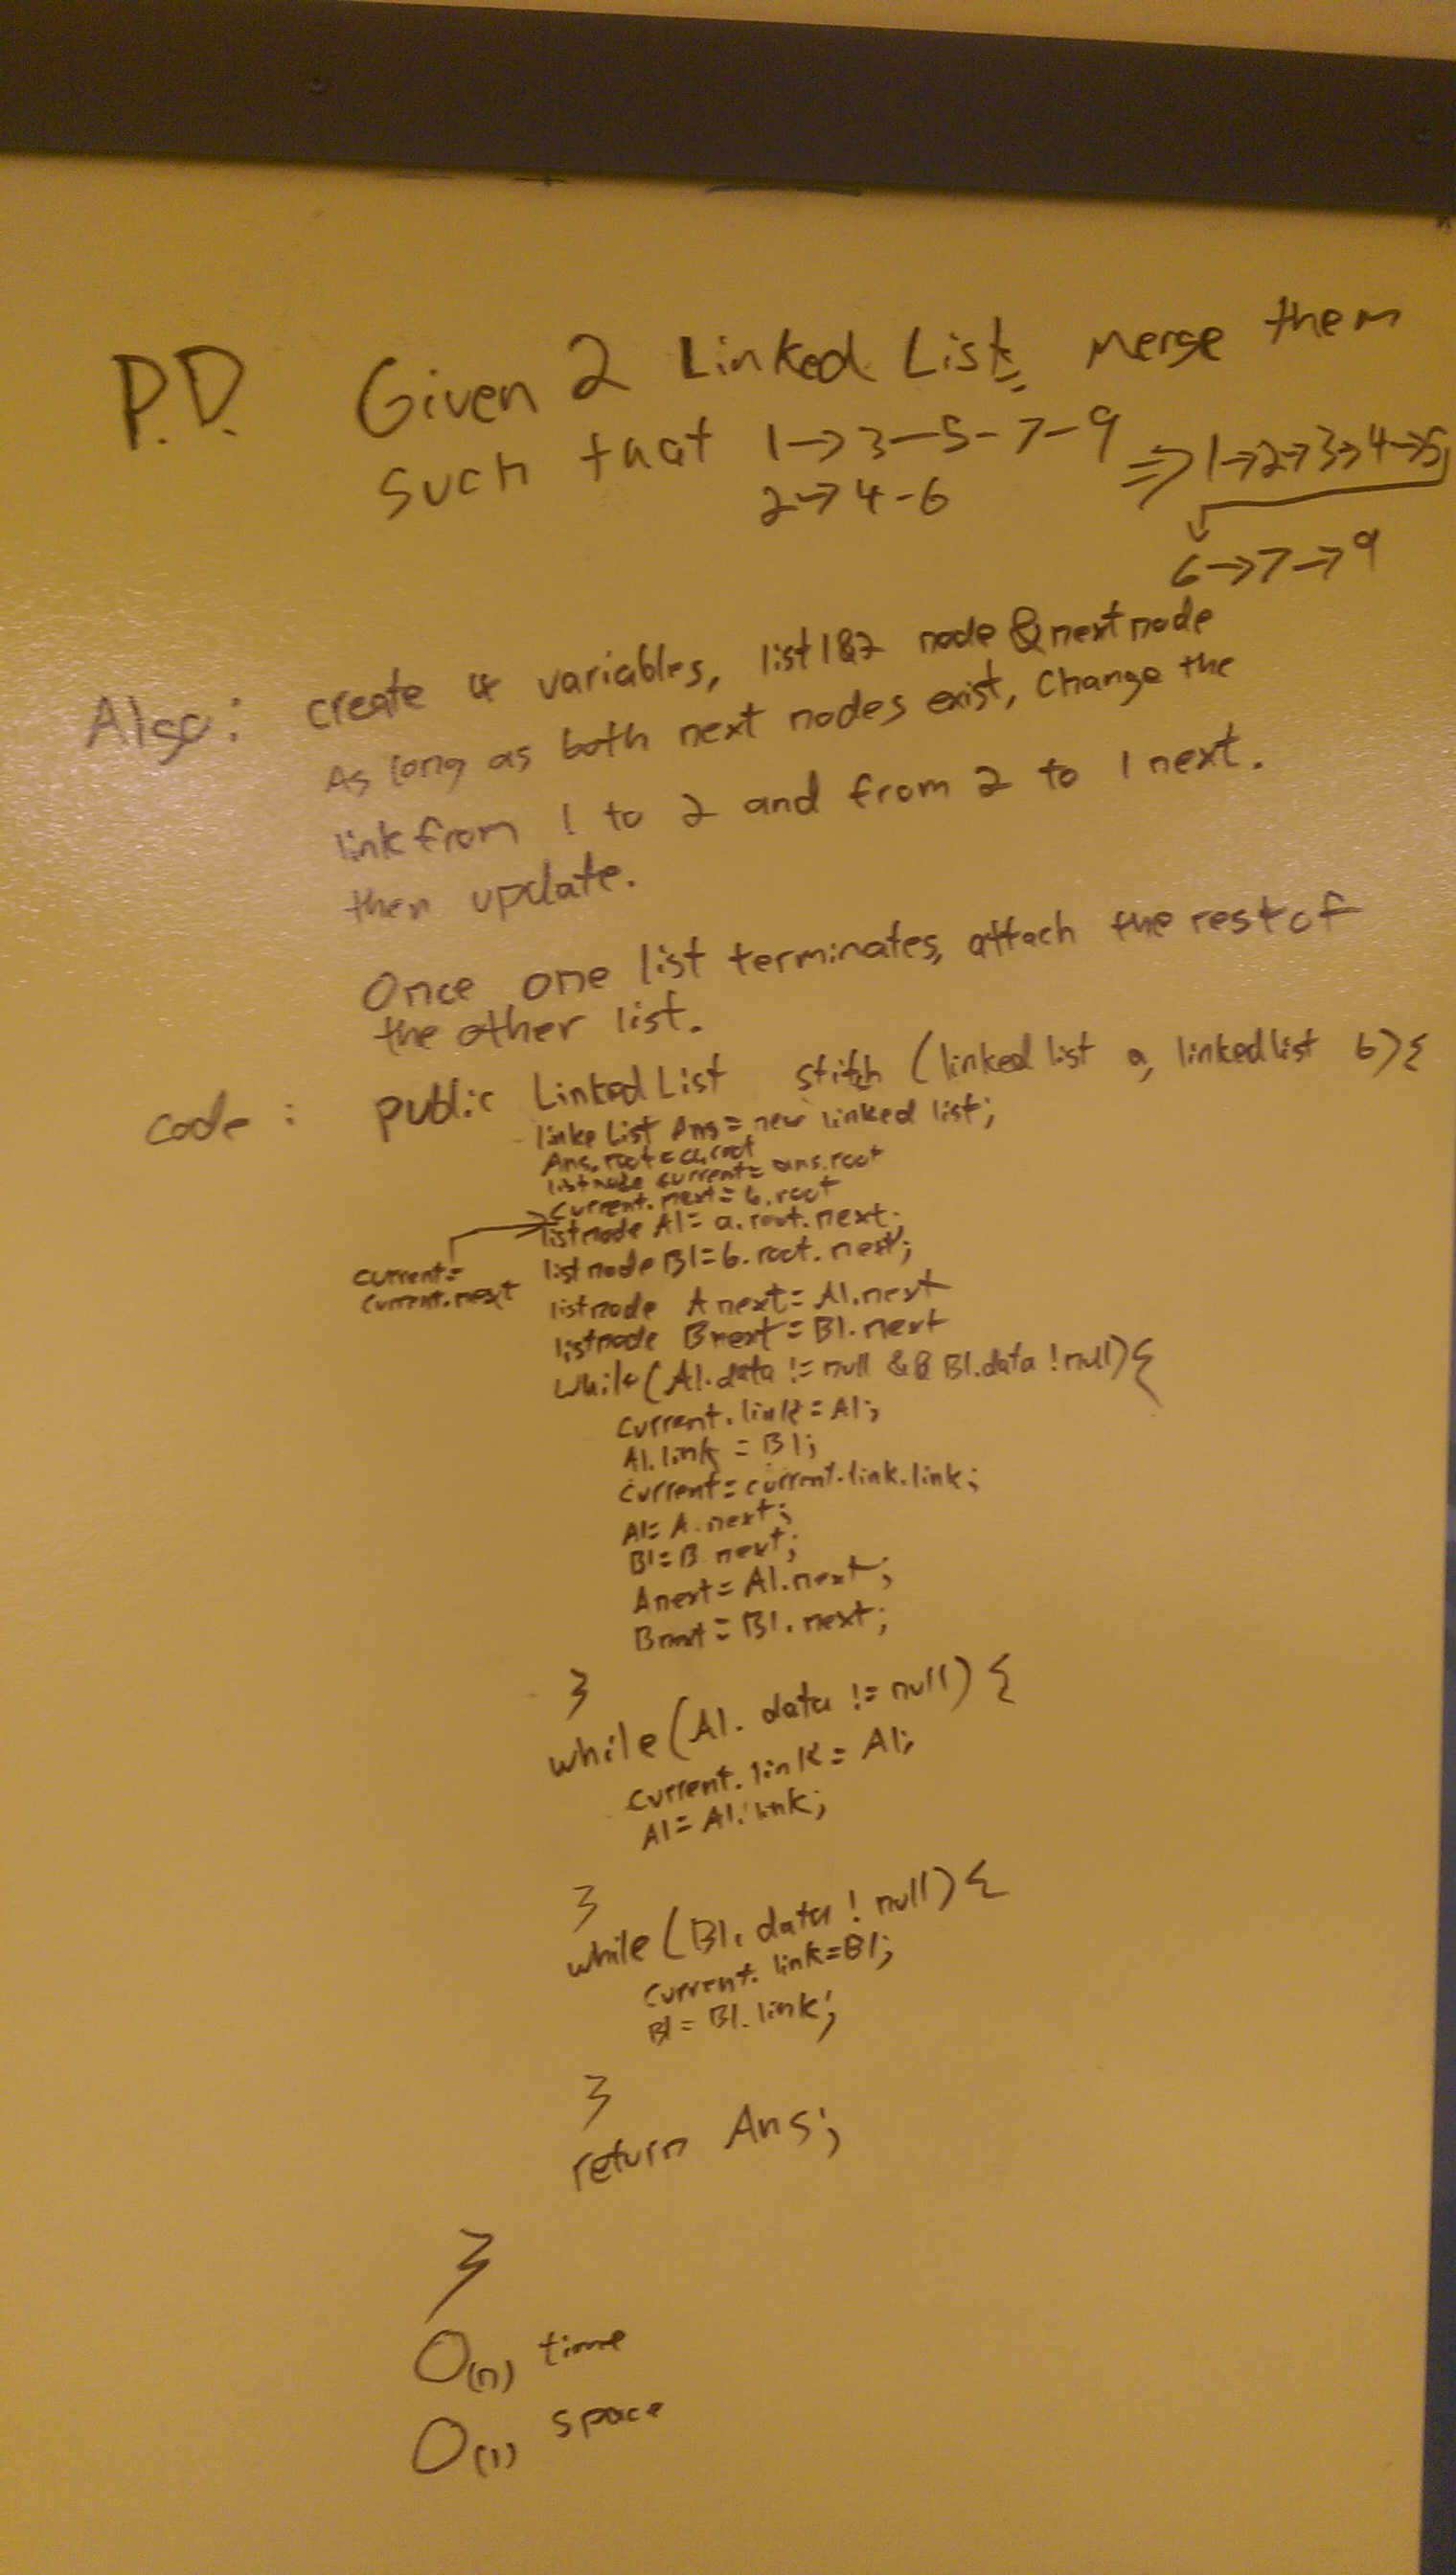 P.D. Given 2 Linked Lists, Merge them
such that 1→3-5-7-9 ⇒ 1→2→3→4→5
2→4-6
6→7→9
Algo: create 4 variables, list 1&2 node & next node
As long as both next nodes exist, Change the
link from 1 to 2 and from 2 to 1 next.
then update.
Once one list terminates, attach the rest of
the other list.
code: public Linked List stitch (linked list a, linked list b){
linke List Ans = new linked list;
Ans.root = a.root
listnode current = ans.root
current.next = b.root
listnode A1 = a.root.next;
current =
current.next
listnode B1 = b.root.next;
listnode Anext = A1.next
listnode Bnext = B1.next
while(A1.data != null && B1.data ! null){
current.link = A1;
A1.link = B1;
current = current.link.link;
A1 = A.next;
B1 = B.next;
Anext = A1.next;
Bnext = B1.next;
}
while(A1.data != null){
current.link = A1;
A1 = A1.link;
}
while(B1.data ! null){
current.link=B1;
B1 = B1.link;
}
return Ans;
}
O(n) time
O(1) space